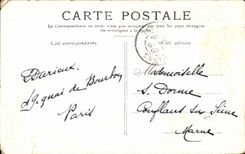 CARTE POSTALE
La Correspondance au recto n'est pas acceptée par tous les pays étrangers
(Se renseigner à la Poste)
Côté correspondance
Côté adresse
Darieux
19 quai de Bourbon
Paris
Mademoiselle
S. Dorme
Conflans sur Seine
Marne